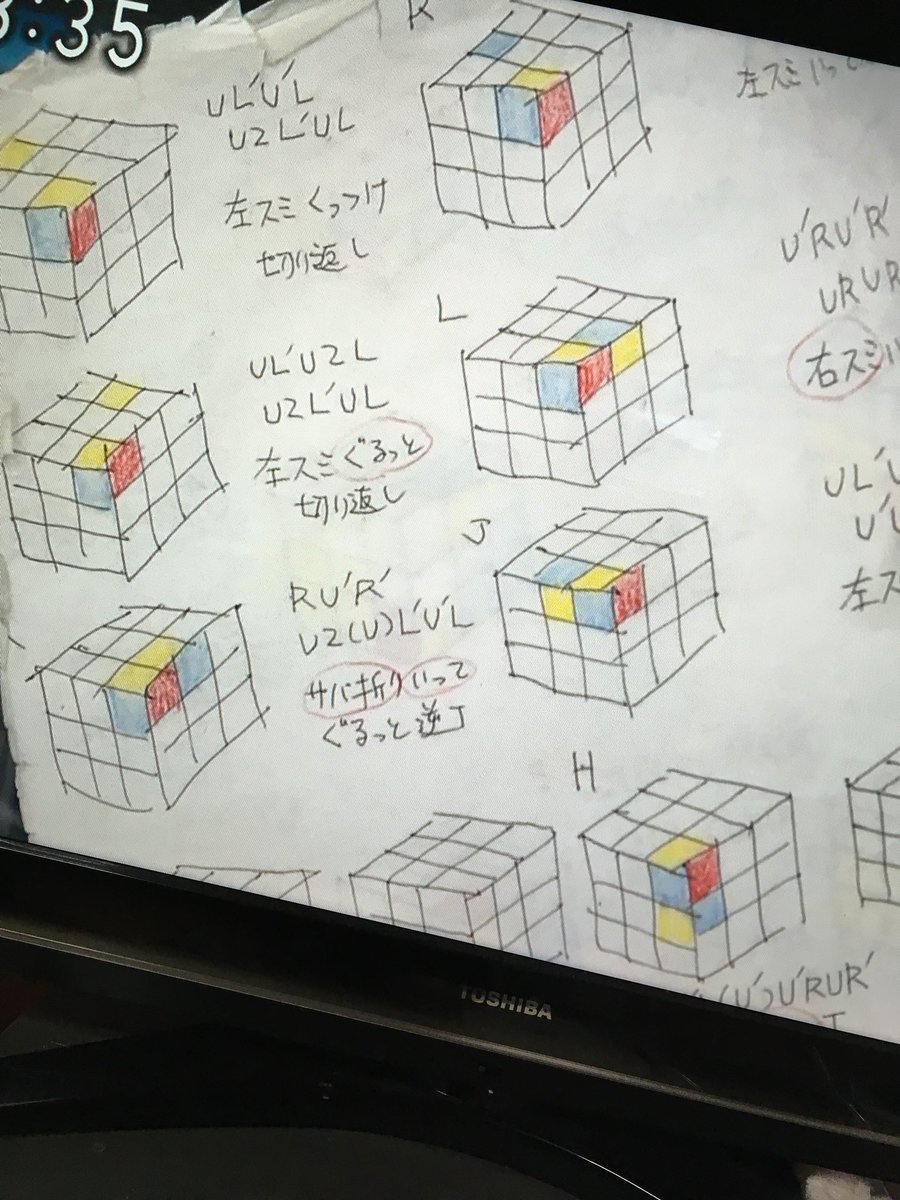 :35
UL'U'L
U2L'UL
左スミくっつけ
切り返し
K
左スミ
U'RU'R'
URUR
右スミ
UL'U2L
U2L'UL
左スミぐるっと
切り返し
L
UL'
U'
左ス
RU'R'
U2(U)L'U'L
サバ折りいって
ぐるっと逆J
J
H
(U')U'RUR'
TOSHIBA